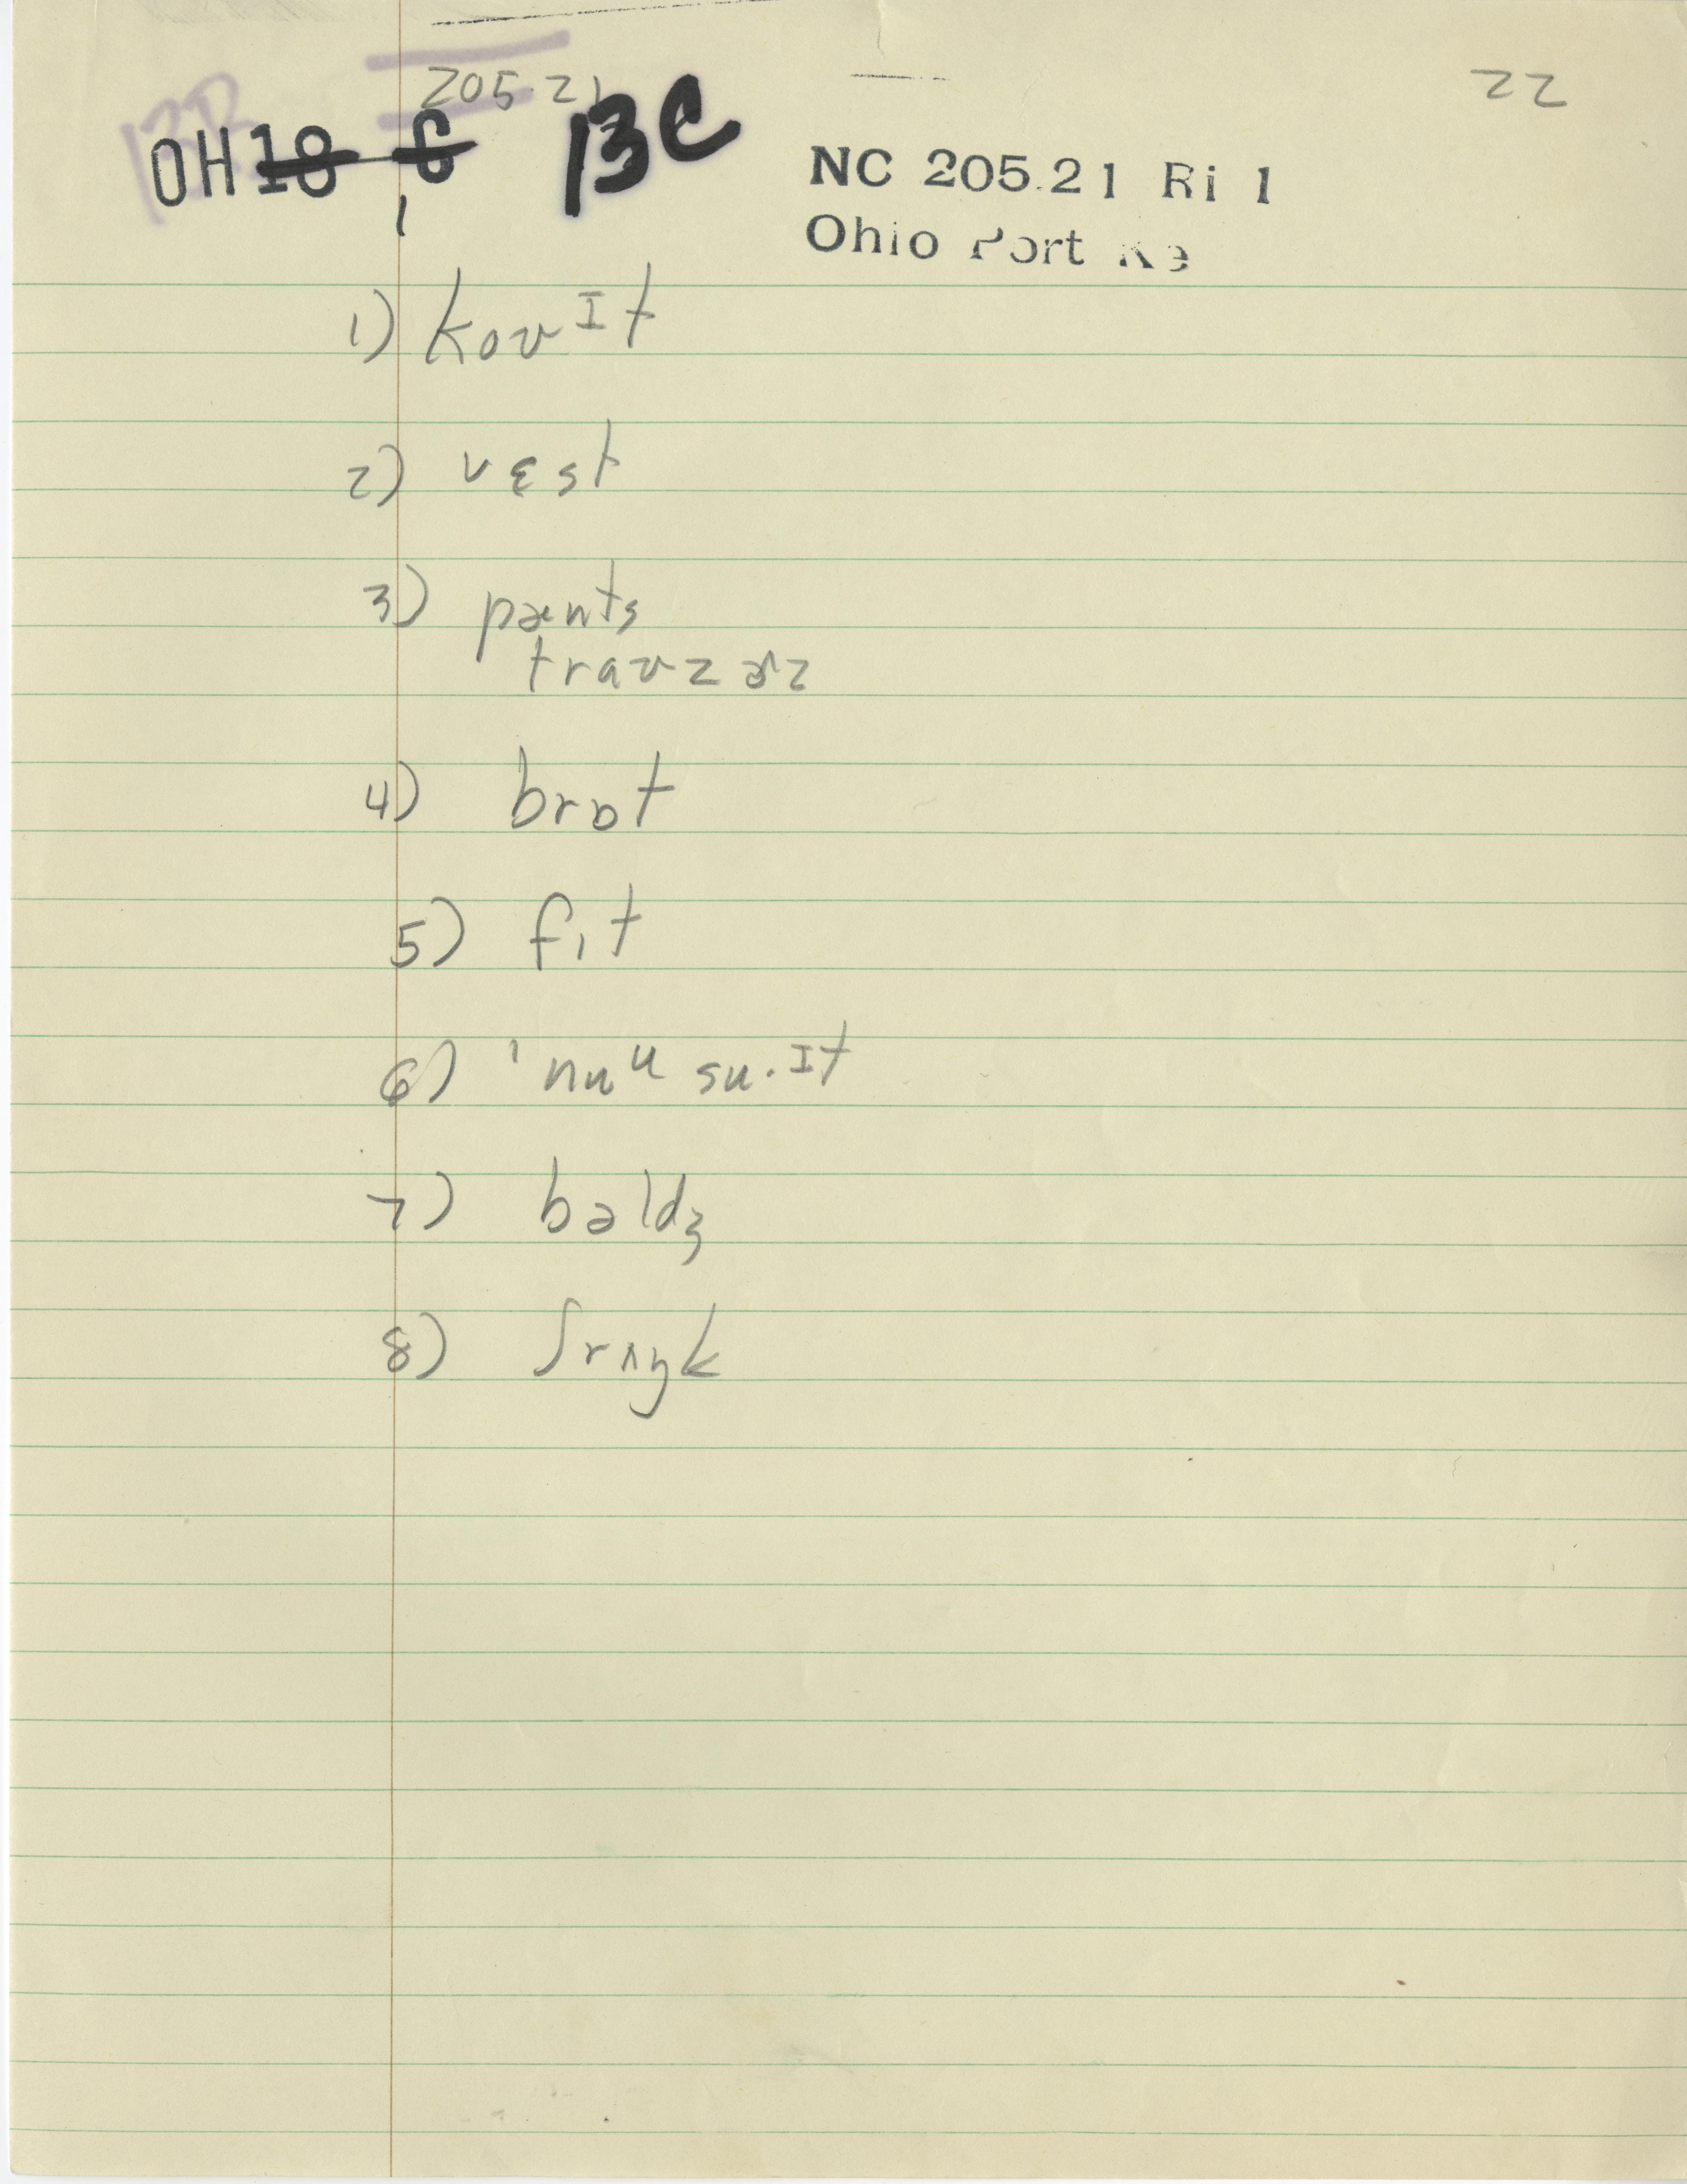 205.21
22
OH 18 C 13C
1
NC 205.21 Ri 1
Ohio Port Ke
1) koʊɪt
2) vɛst
3) pænts
traʊzɚz
4) brɒt
5) fɪt
6) ˈnuᵘ su·ɪt
7) bəldʒ
8) ʃrʌŋk